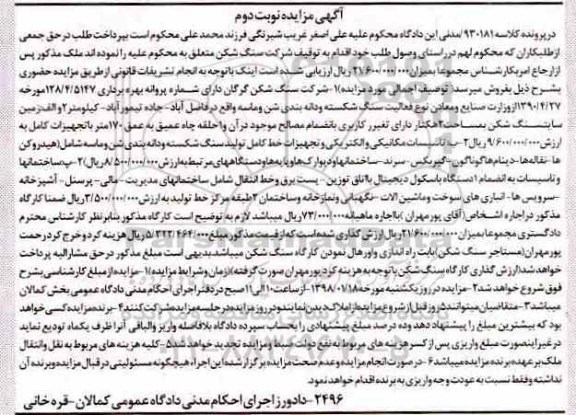 آگهی مزایده نوبت دوم
در پرونده کلاسه ۹۳۰۱۸۱/مدنی این دادگاه محکوم علیه علی اصغر غریب شیرنگی فرزند محمد علی محکوم است بپرداخت طلب در حق جمعی
از طلبکاران که محکوم لهم در راستای وصول طلب خود اقدام به توقیف شرکت سنگ شکن متعلق به محکوم علیه را نموده اند ملک مذکور پس
از ارجاع امر بکارشناس مجموعا بمیزان ۲۱/۶۰۰/۰۰۰/۰۰۰ ریال ارزیابی شده است اینک باتوجه به انجام تشریفات قانونی از طریق مزایده حضوری
بشرح ذیل بفروش میرسد( توصیف اجمالی مورد مزایده)۱-شرکت سنگ شکن گرگان دارای شماره پروانه بهره برداری ۱۲۸/۴/۵۱۴۷ مورخه
۱۳۹۰/۴/۲۷ از وزارت صنایع و معادن نوع فعالیت سنگ شکسته ودانه بندی شن وماسه واقع در فاضل آباد- جاده تیمور آباد- کیلومتر ۲ و الف زمین
سایت سنگ شکن بمساحت ۲هکتار دارای تغییر کاربری بانضمام مصالح موجود در آن و ۱حلقه چاه عمیق به عمق ۱۷۰متر با تجهیزات کامل به
ارزش ۹/۶۰۰/۰۰۰/۰۰۰ ریال ۲-ب تاسیسات مکانیکی والکتریکی و تجهیزات خط کامل تولید سنگ شکسته ودانه بندی شن وماسه شامل(هیدروکن
ها -نقاله ها- دینام هاگوناگون -گیربکس -سرند-ساختمانها ودیوارک هاو پایه هاودستگاههای مرتبط به ارزش ۸/۵۰۰/۰۰۰/۰۰۰ریال)۲-پ ساختمانها
وتاسیسات به انضمام ۱دستگاه باسکول دیجیتال با اتاق توزین - پست برق وخط انتقال شامل ساختمانهای مدیریت -مالی- پرسنل - آشپزخانه
-سرویس ها- انباری های سوخت وماشین الات -نگهبانی ونمازخانه وساختمان ۲طبقه مرکز خط تولید به ارزش ۳/۵۰۰/۰۰۰/۰۰۰ریال ضمنا کارگاه
مذکور در اجاره اشخاص (آقای پور مهران )با اجاره ماهیانه ۷۳/۰۰۰/۰۰۰ ریال میباشد لازم به توضیح است کارگاه مذکور بنابر نظر کارشناس محترم
دادگستری مجموعا بمیزان ۲۱/۶۰۰/۰۰۰/۰۰۰ریال ارزش گذاری شده است که از قیمت مذکور مبلغ ۵/۳۲۲/۴۶۴/۰۰۰ ریال هزینه کرد و خرج کرد رحمت
پور مهران(مستاجر سنگ شکن) بابت راه اندازی واورهال نمودن کارگاه سنگ شکن میباشد بدیهی است مبلغ مذکور در حق مشارالیه پرداخت
خواهد شد(ارزش گذاری کارگاه سنگ شکن با توجه به هزینه کرد پور مهران صورت گرفته)(زمان وشرایط مزایده)۱-مزایده از مبلغ کارشناسی بشرح
فوق شروع خواهد شد۲-مزایده در روز یکشنبه مورخه ۱۳۹۸/۰۷/۱۸ از ساعت ۱۰الی ۱۱صبح در دفتر اجرای احکام مدنی دادگاه عمومی بخش کمالان
میباشد۳-متقاضیان میتوانند ۵روز قبل از شروع مزایده از املاک دیدن نمایند ودر روز مزایده در جلسه مزایده شرکت کنند۴- برنده مزایده کسی خواهد
بود که بیشترین مبلغ را پیشنهاد دهد وده درصد مبلغ پیشنهادی را بحساب سپرده دادگاه بلافاصله واریز والباقی آنرا ظرف یکماه تودیع نماید
در غیر اینصورت مبلغ واریزی پس از کسر هزینه های مربوط به نفع دولت ضبط ومزایده تجدید خواهد شد۵-کلیه هزینه های مربوط به نقل وانتقال
ملک بر عهده برنده مزایده میباشد۶-در صورت انجام مزایده وعدم صحت مزایده برگزار شده این اجراء هیچگونه مسئولیتی در قبال مزایده وبرنده آن
نداشته وفقط نسبت به عودت وجه واریزی به برنده اقدام خواهد نمود.
۲۴۹۶-دادورز اجرای احکام مدنی دادگاه عمومی کمالان- قره خانی